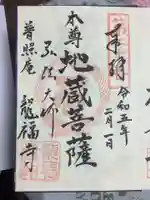 奉拝
令和五年
二月一日
本尊
地蔵菩薩
弘法大師
普照庵
龍福寺